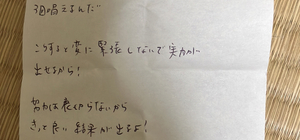 3回唱えるんだ
こうすると変に緊張しないで実力が
出せるから！
努力は裏切らないから
きっと良い結果が出るよ！